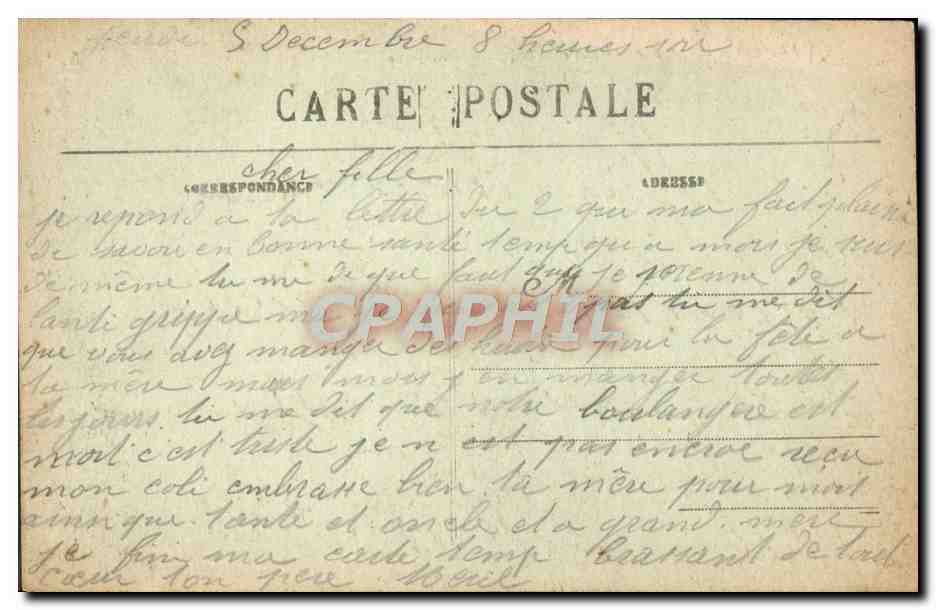 5 Decembre 8 heures soir
CARTE POSTALE
cher fille
CORRESPONDANCE ADRESSE
je repond a ta lettre du 2 que ma fait plaisir
de savoir en bonne santé temp qu a mois je suis
de même tu me di que faut que je prenne de
lanti grippe pas tu me dit
que vous avez manger de pour la fête a
ta mère mais mois j en manger toutes
les jours tu me dit que notre boulangere est
mort c est triste je n est pas encroe recu
mon coli embrasse bien ta mère pour mois
ainsi que tante et oncle et a grand mère
je fini ma carte temp brassant de tout
cœur ton pere
CPAPHIL